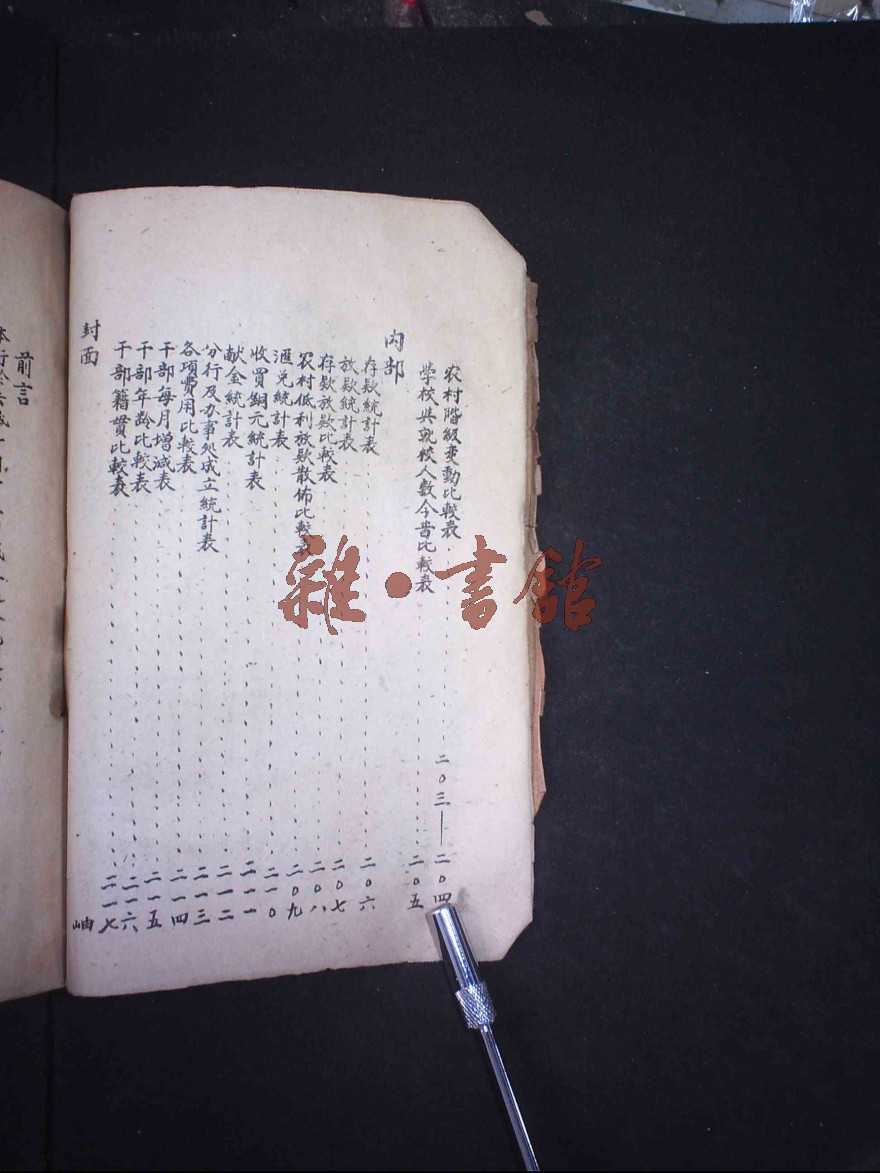 农村階級变動比較表 二〇三——二〇四
學校与就校人数今昔比較表 二〇五
內部
存欵統計表 二〇六
放欵統計表 二〇七
存欵放欵比較表 二〇八
农村低利放欵散佈比較表 二〇九
滙兑統計表 二一〇
收買銅元統計表 二一一
献金統計表 二一二
分行及办事处成立統計表 二一三
各項費用比較表 二一四
干部每月增減表 二一五
干部年龄比較表 二一六
干部籍貫比較表 二一七
封面
前言
雜·書館